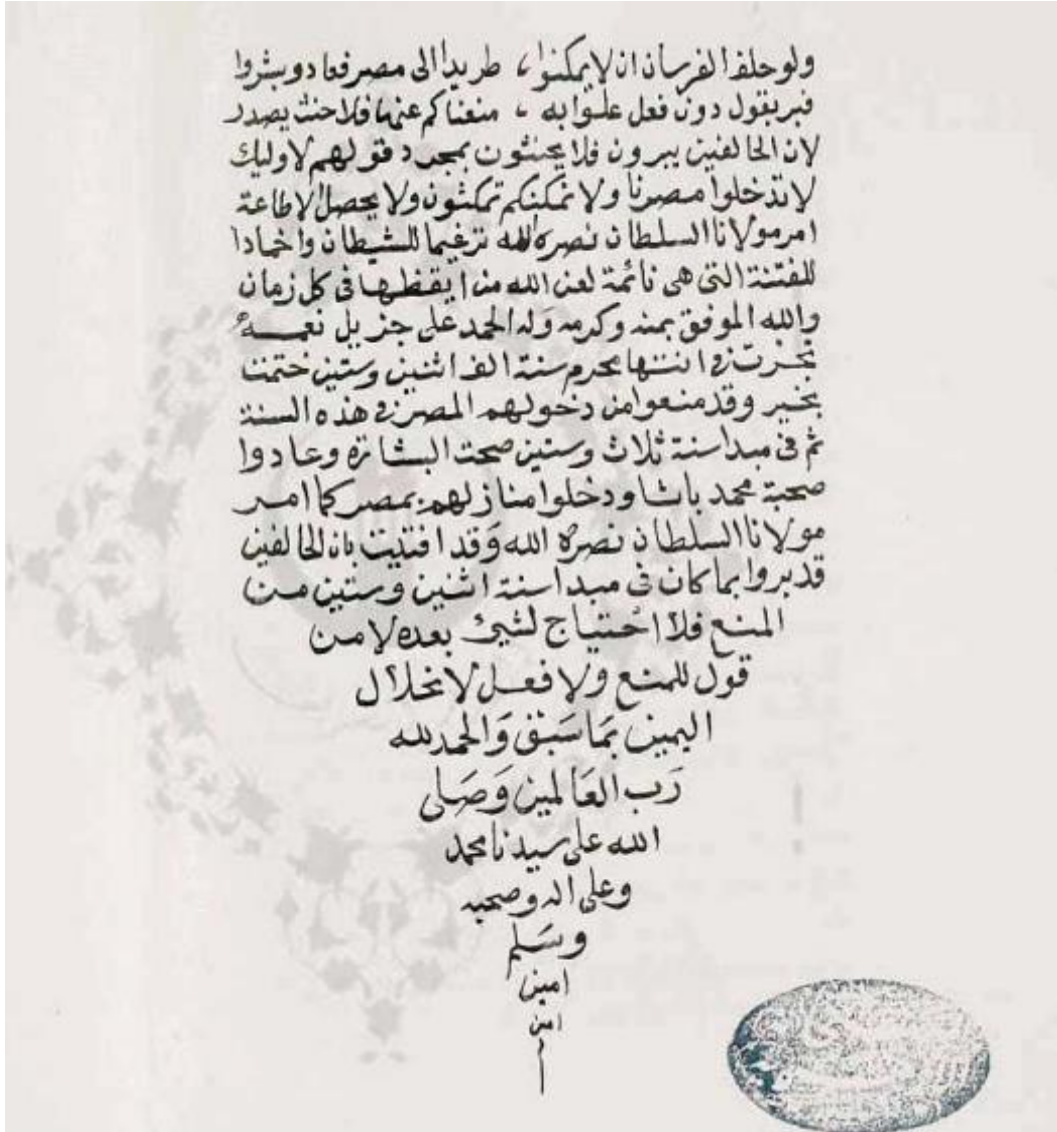 ولو حلف الفرسان ان لا يمكنوا، طريدا الى مصر فعادو بشروا
فبر بقول دون فعل علوا به، منعناكم عنها فلا حنث يصدر
لان الحالفين يبرون فلا يحنثون بمجرد قولهم لاوليك
لا تدخلوا مصرنا ولا نمكنكم تمكثون ولا يحصل الاطاعة
امر مولانا السلطان نصره الله ترغيما للشيطان واخمادا
للفتنة التى هى نائمة لعن الله من ايقظها فى كل زمان
والله الموفق بمنه وكرمه وله الحمد على جزيل نعمه
نجزت فى انتها محرم سنة الف اثنين وستين ختمت
بخير وقد منعوا من دخولهم المصر فى هذه السنة
ثم فى مبدا سنة ثلاث وستين صحت البشارة وعادوا
صحبة محمد باشا ودخلوا منازلهم بمصر كما امر
مولانا السلطان نصره الله وقد افتيت بان الحالفين
قد بروا بما كان فى مبدا سنة اثنين وستين من
المنع فلا احتياج لشيئ بعده لا من
قول للمنع ولا فعل لانحلال
اليمين بما سبق والحمد لله
رب العالمين وصلى
الله على سيدنا محمد
وعلى اله وصحبه
وسلم
امين
امن